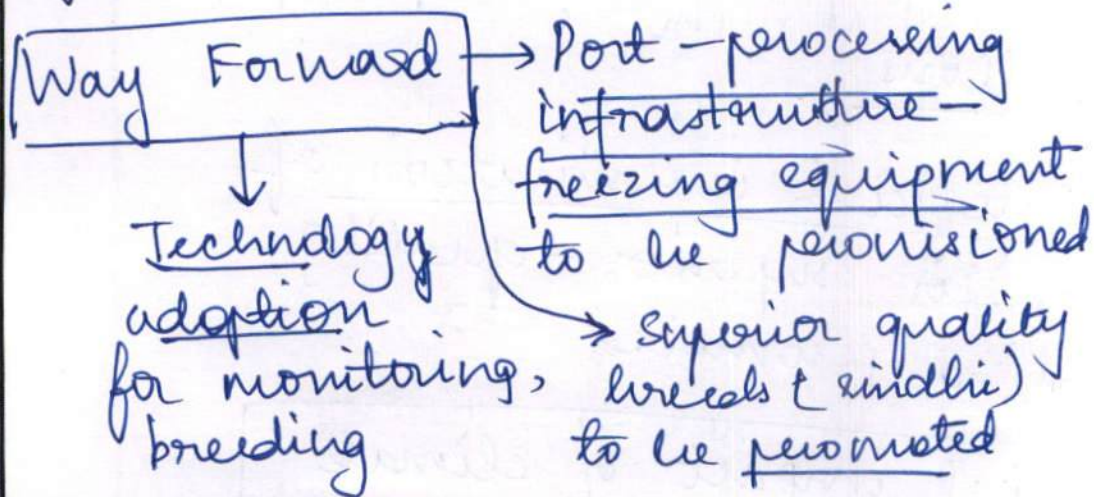 Way Forward → Port - processing
infrastructure -
freezing equipment
to be provisioned
Technology
adoption
for monitoring,
breeding
superior quality
breeds (sindhi)
to be promoted